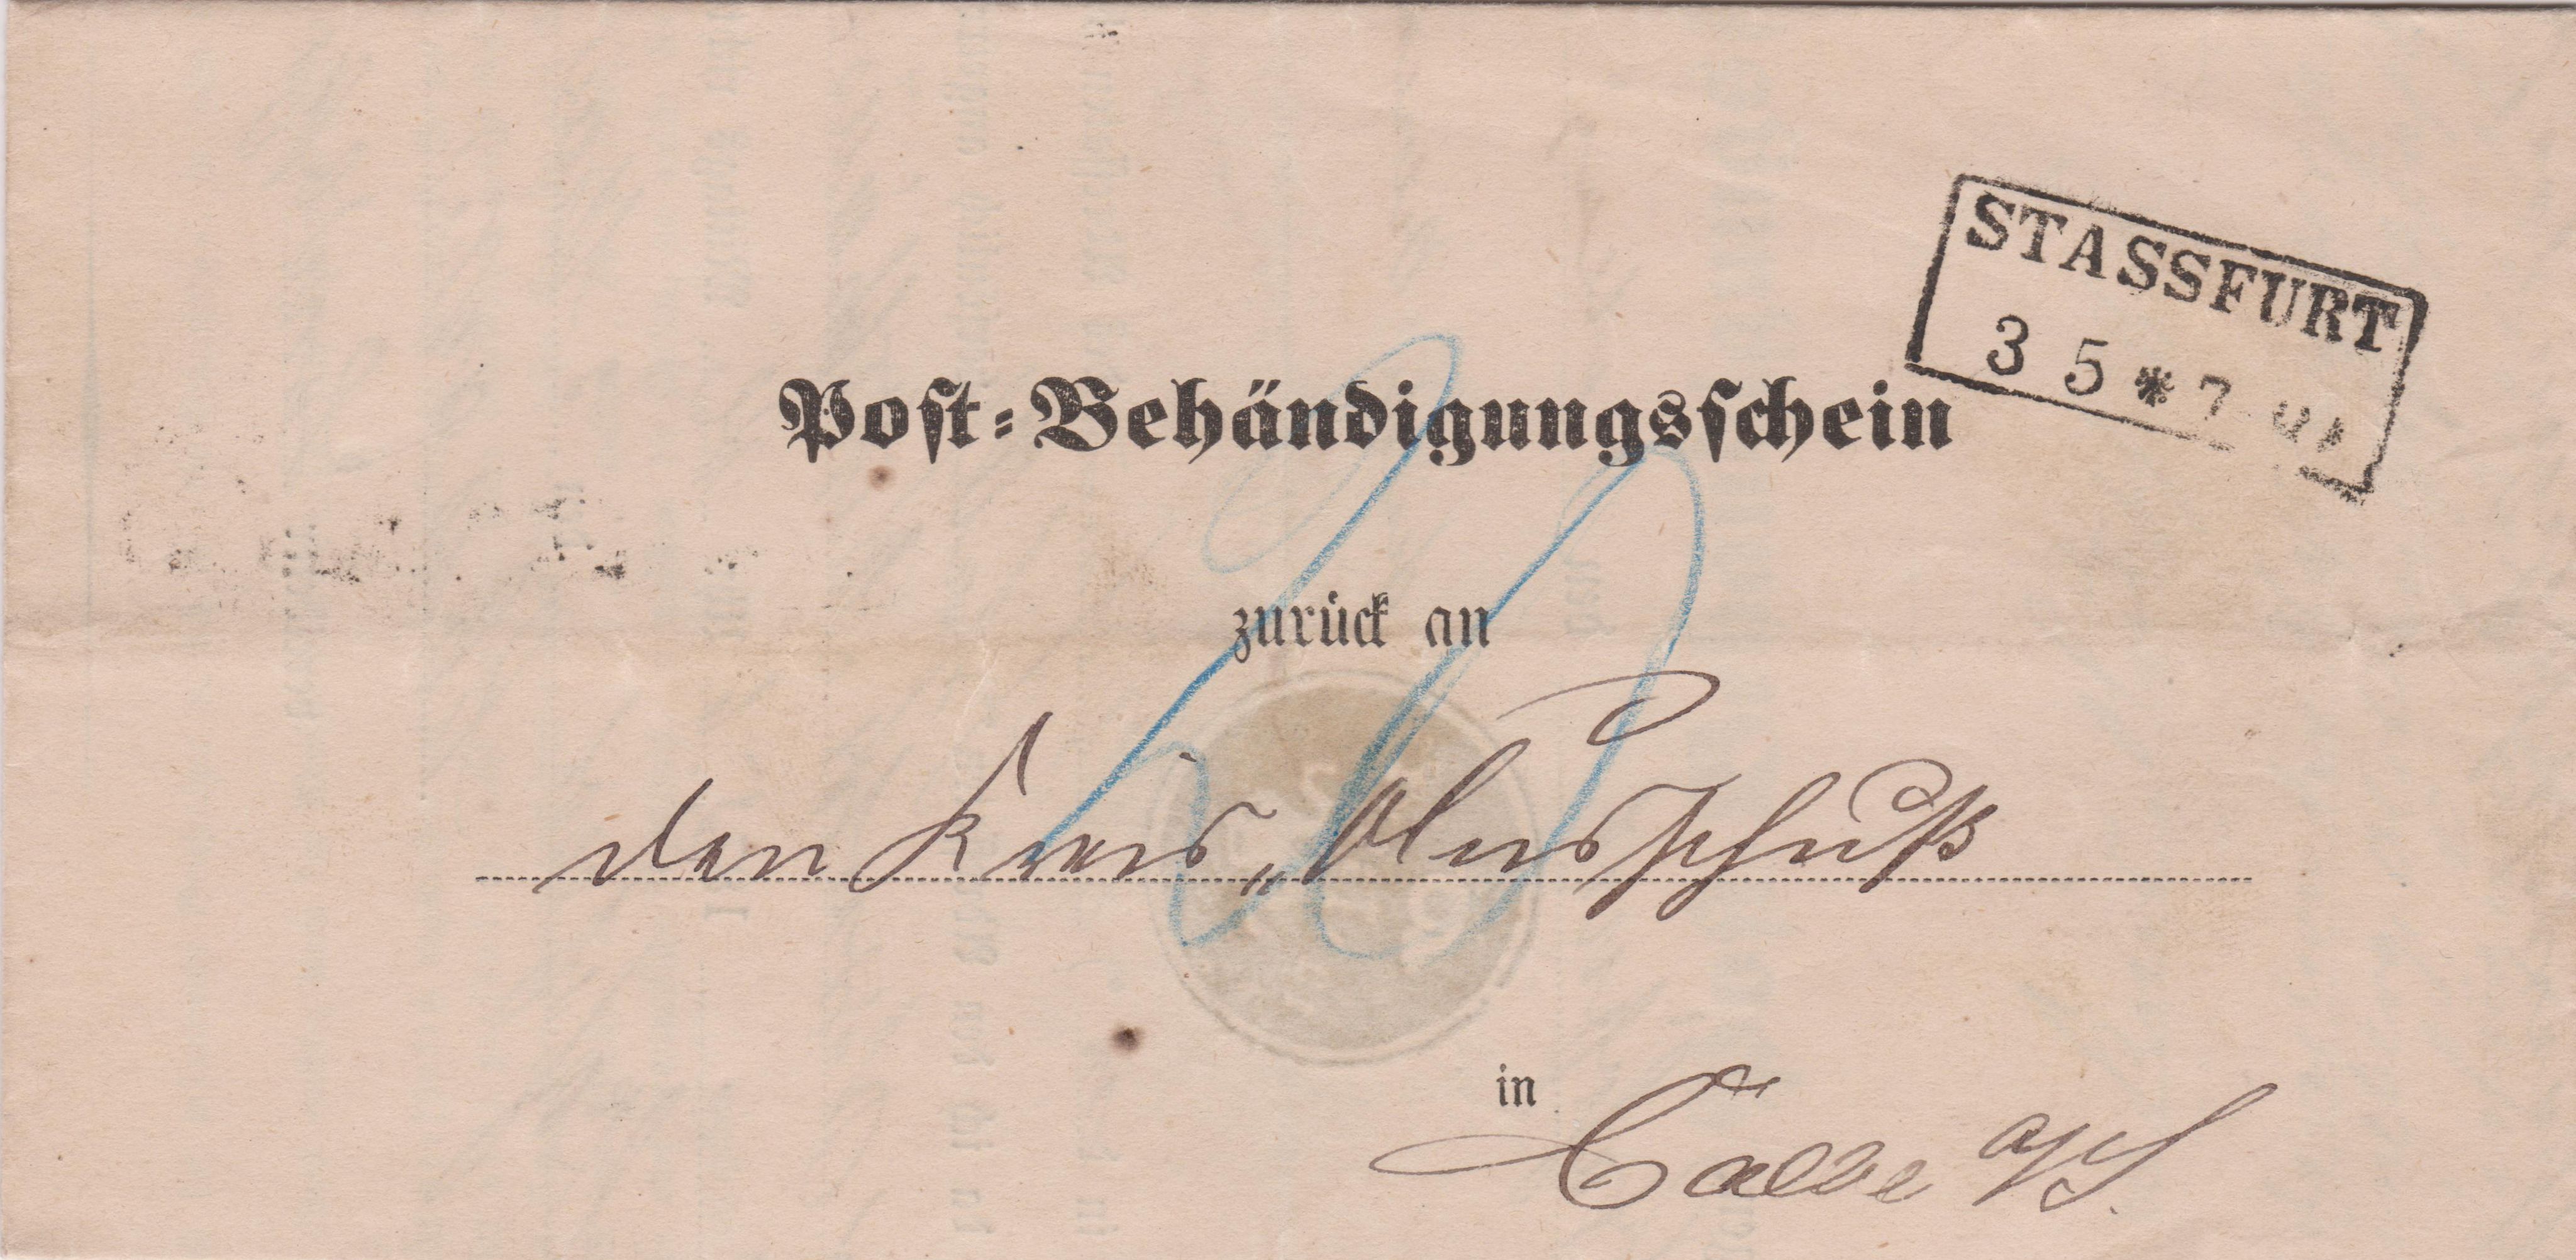 STASSFURT
3 5 * 7
Post-Behändigungsschein
zurück an
den Kreis-Ausschuß
in
Calbe a/S.